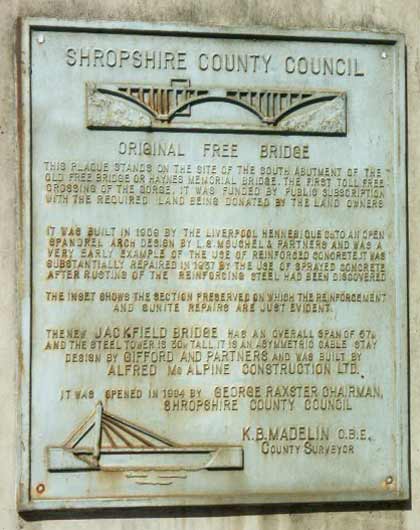 SHROPSHIRE COUNTY COUNCIL
ORIGINAL FREE BRIDGE
THIS PLAQUE STANDS ON THE SITE OF THE SOUTH ABUTMENT OF THE
OLD FREE BRIDGE OR HAYNES MEMORIAL BRIDGE. THE FIRST TOLL FREE
CROSSING OF THE GORGE. IT WAS FUNDED BY PUBLIC SUBSCRIPTION
WITH THE REQUIRED LAND BEING DONATED BY THE LAND OWNERS
IT WAS BUILT IN 1909 BY THE LIVERPOOL HENNEBIQUE CO TO AN OPEN
SPANDREL ARCH DESIGN BY L.G. MOUCHEL & PARTNERS AND WAS A
VERY EARLY EXAMPLE OF THE USE OF REINFORCED CONCRETE. IT WAS
SUBSTANTIALLY REPAIRED IN 1937 BY THE USE OF SPRAYED CONCRETE
AFTER RUSTING OF THE REINFORCING STEEL HAD BEEN DISCOVERED
THE INSET SHOWS THE SECTION PRESERVED ON WHICH THE REINFORCEMENT
AND GUNITE REPAIRS ARE JUST EVIDENT.
THE NEW JACKFIELD BRIDGE HAS AN OVERALL SPAN OF 57m
AND THE STEEL TOWER IS 30m TALL. IT IS AN ASYMMETRIC CABLE STAY
DESIGN BY GIFFORD AND PARTNERS AND WAS BUILT BY
ALFRED Mc ALPINE CONSTRUCTION LTD.
IT WAS OPENED IN 1994 BY GEORGE RAXSTER CHAIRMAN,
SHROPSHIRE COUNTY COUNCIL
K.B. MADELIN O.B.E.
COUNTY SURVEYOR